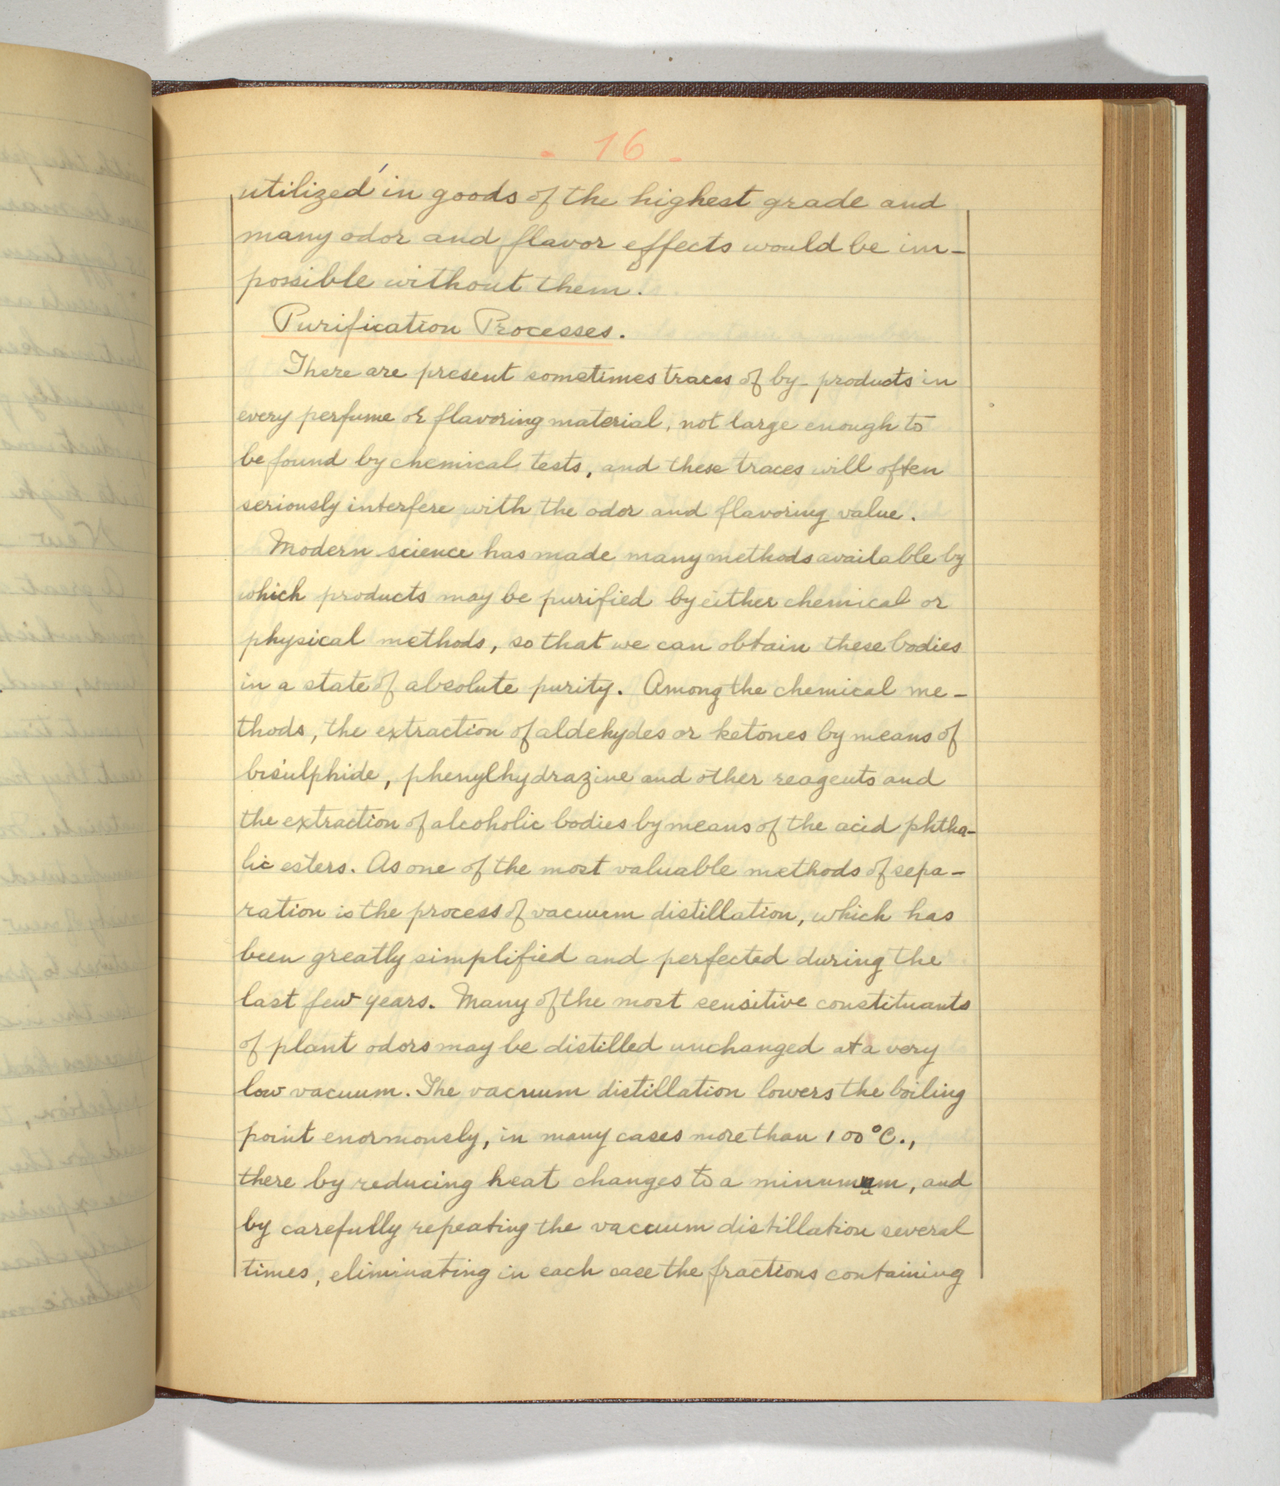 - 16 -
utilized in goods of the highest grade and
many odor and flavor effects would be im-
possible without them.
Purification Processes.
There are present sometimes traces of by-products in
every perfume or flavoring material, not large enough to
be found by chemical tests, and these traces will often
seriously interfere with the odor and flavoring value.
Modern science has made many methods available by
which products may be purified by either chemical or
physical methods, so that we can obtain these bodies
in a state of absolute purity. Among the chemical me-
thods, the extraction of aldehydes or ketones by means of
bisulphide, phenylhydrazine and other reagents and
the extraction of alcoholic bodies by means of the acid phtha-
lic esters. As one of the most valuable methods of sepa-
ration is the process of vacuum distillation, which has
been greatly simplified and perfected during the
last few years. Many of the most sensitive constituants
of plant odors may be distilled unchanged at a very
low vacuum. The vacuum distillation lowers the boiling
point enormously, in many cases more than 100°C.,
there by reducing heat changes to a minumum, and
by carefully repeating the vacuum distillation several
times, eliminating in each case the fractions containing